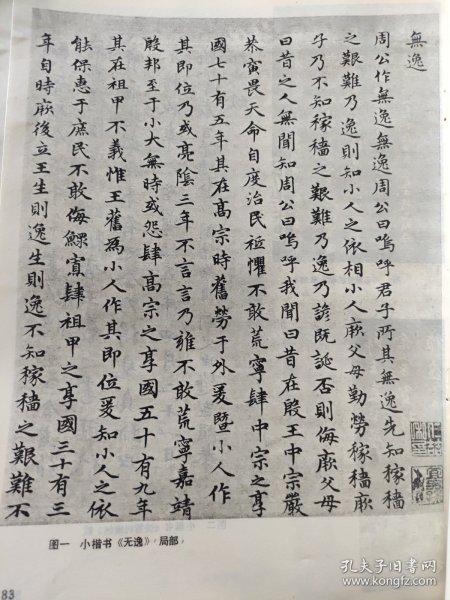 無逸
周公作無逸無逸周公曰嗚呼君子所其無逸先知稼穡
之艱難乃逸則知小人之依相小人厥父母勤勞稼穡厥
子乃不知稼穡之艱難乃逸乃諺既誕否則侮厥父母
曰昔之人無聞知周公曰嗚呼我聞曰昔在殷王中宗嚴
恭寅畏天命自度治民祗懼不敢荒寧肆中宗之享
國七十有五年其在髙宗時舊勞于外爰暨小人作
其即位乃或亮陰三年不言言乃雍不敢荒寧嘉靖
殷邦至于小大無時或怨肆髙宗之享國五十有九年
其在祖甲不義惟王舊為小人作其即位爰知小人之依
能保惠于庶民不敢侮鰥寡肆祖甲之享國三十有三
年自時厥後立王生則逸生則逸不知稼穡之艱難不
图一 小楷书《无逸》局部
83
孔夫子旧书网